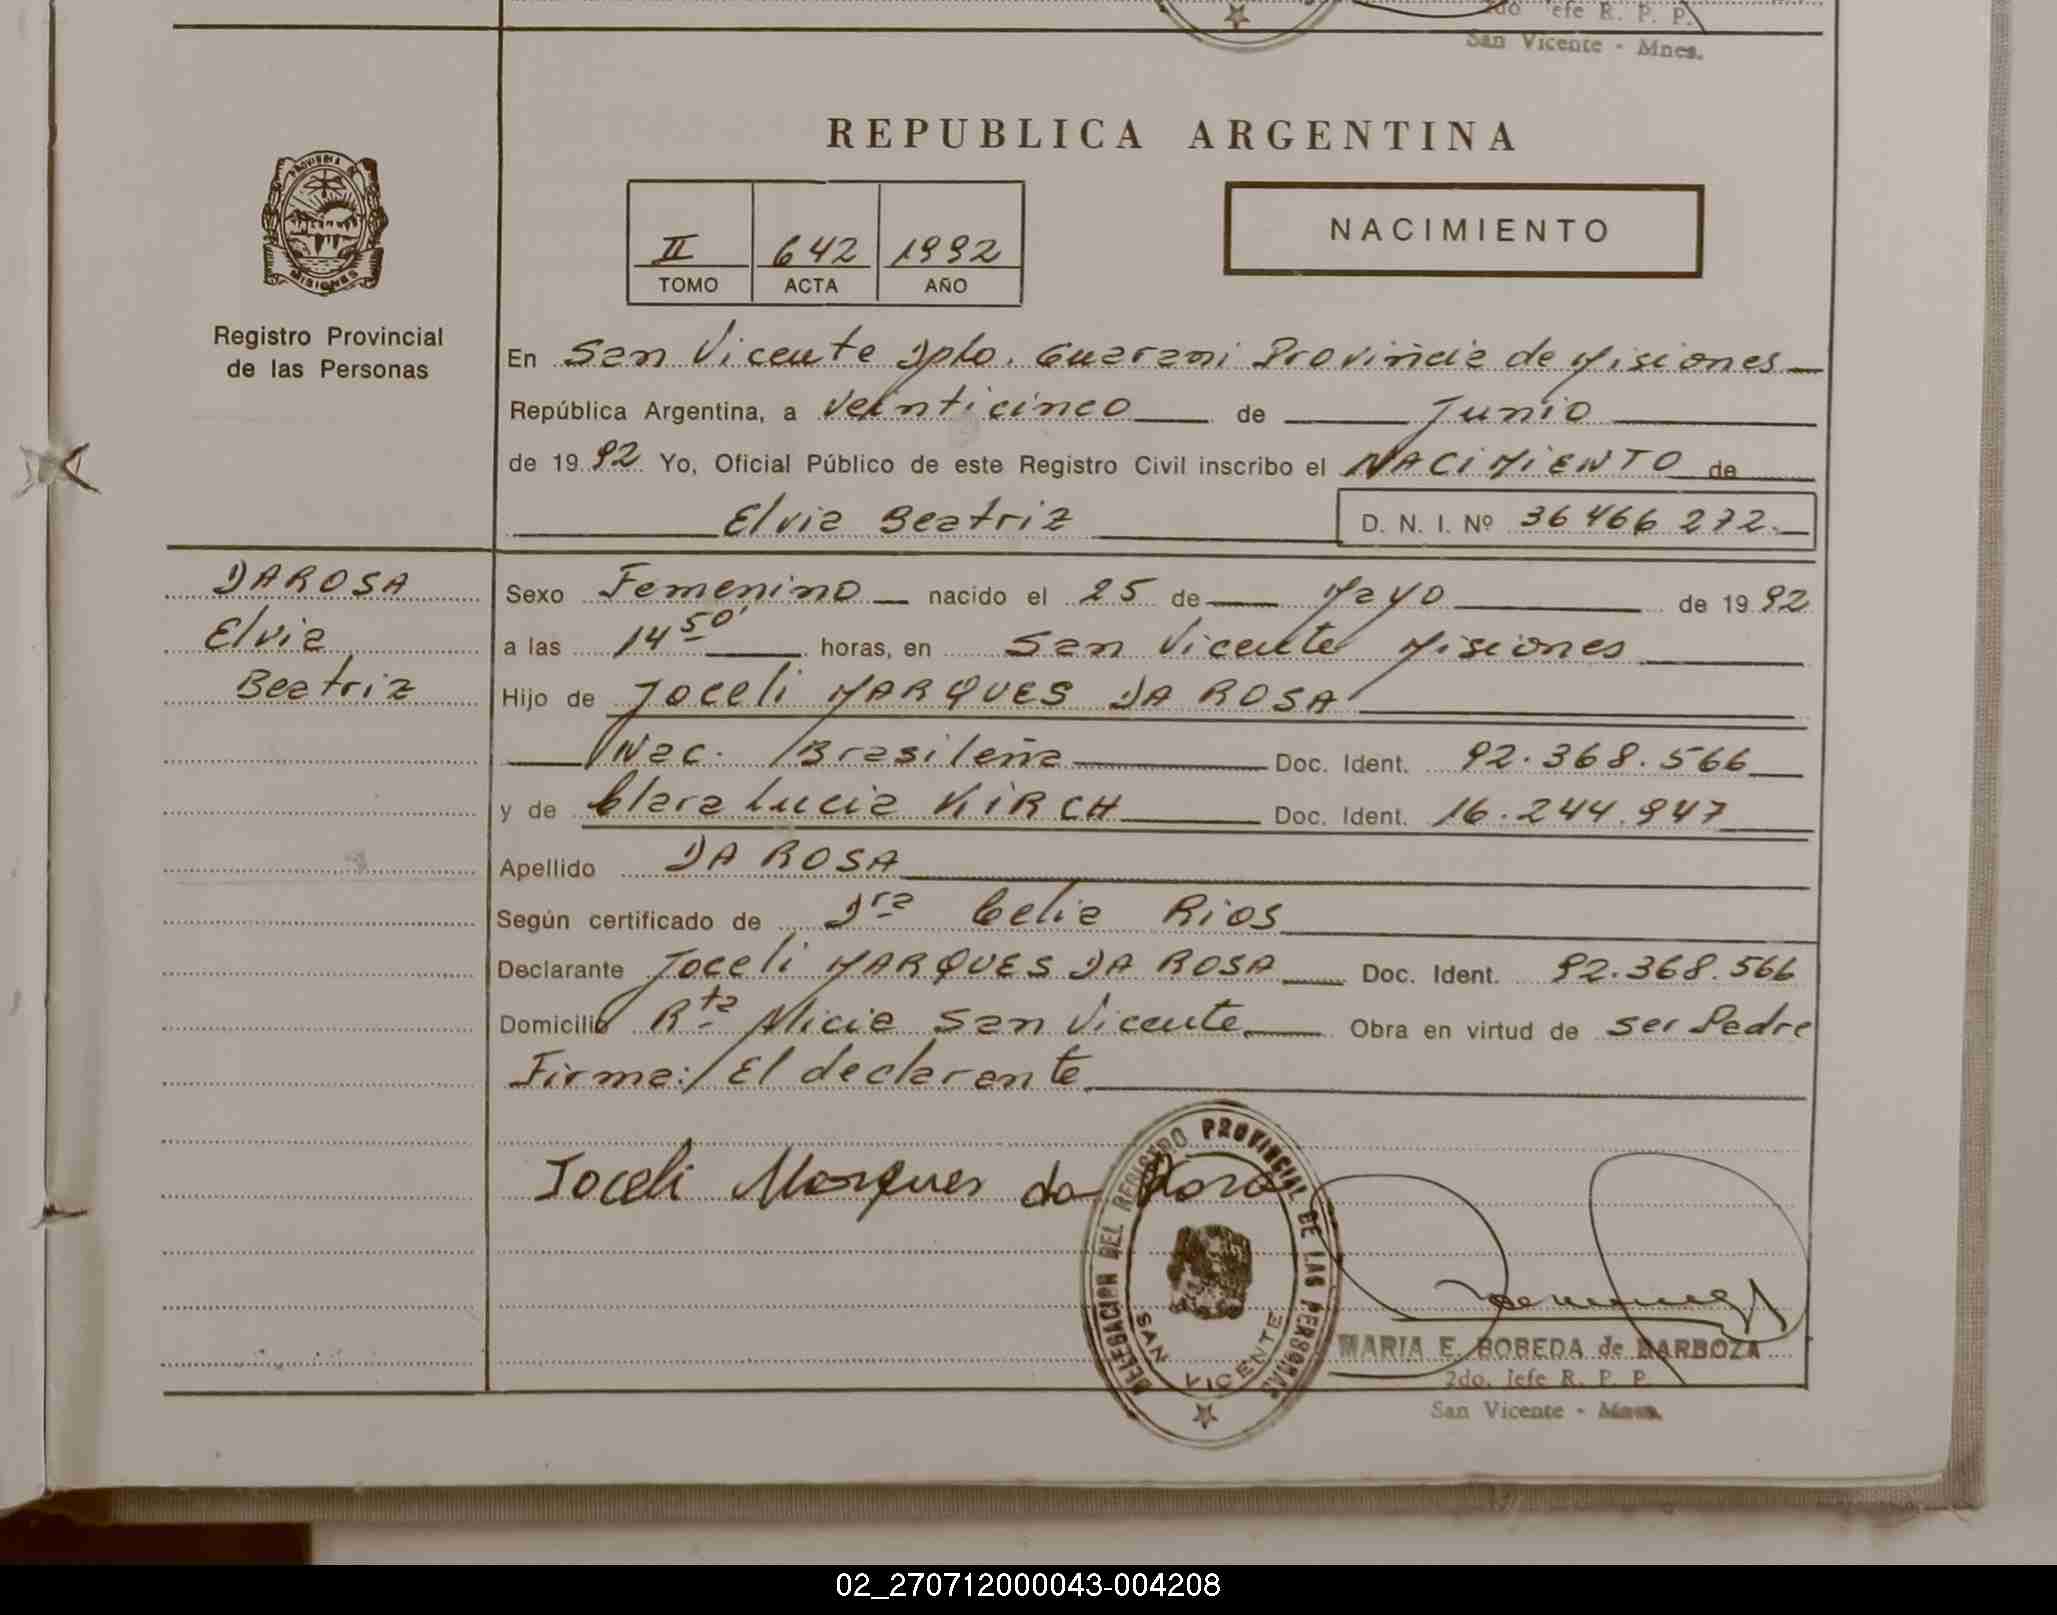 2do Jefe R. P. P.
San Vicente - Mnes.
REPUBLICA ARGENTINA
PROVINCIA DE
MISIONES
II 642 1992
TOMO ACTA AÑO
NACIMIENTO
Registro Provincial
de las Personas
En San Vicente Dpto. Guarani Provincia de Misiones
República Argentina, a veinticinco de Junio
de 1992 Yo, Oficial Público de este Registro Civil inscribo el NACIMIENTO de
Elvia Beatriz D. N. I. Nº 36466272.
DAROSA
Elvia
Beatriz
Sexo Femenino nacido el 25 de Mayo de 1992
a las 14 50' horas, en San Vicente Misiones
Hijo de Joceli MARQUES DA ROSA
Nac. Brasileña Doc. Ident. 92.368.566
y de Clara Lucia KIRCH Doc. Ident. 16.244.947
Apellido DA ROSA
Según certificado de Dra Celia Rios
Declarante Joceli MARQUES DA ROSA Doc. Ident. 92.368.566
Domicilio Rta Alicia San Vicente Obra en virtud de ser Padre
Firma: El declarante
Joceli Marques da Rosa
DELEGACION DEL REGISTRO PROVINCIAL DE LAS PERSONAS
SAN VICENTE
MARIA E. BOBEDA de BARBOZA
2do. Jefe R. P. P.
San Vicente - Mnes.
02_270712000043-004208